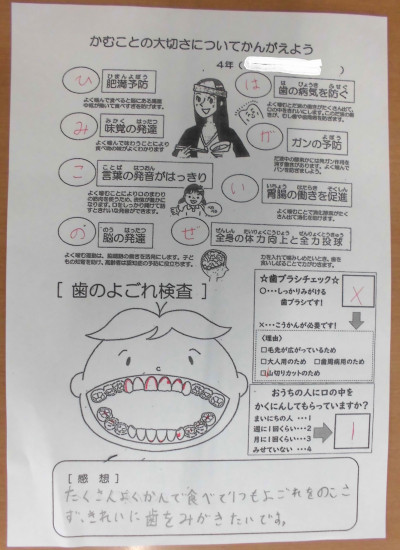 かむことの大切さについてかんがえよう
4年(
)
ひ
ひまんよぼう
肥満予防
よく噛んで食べると脳にある満腹
中枢が働いて食べすぎを防げます。
は
は びょうき ふせ
歯の病気を防ぐ
み
みかく はったつ
味覚の発達
よく噛んで味わうことにより
食べ物の味がよくわかります
が
よぼう
ガンの予防
こ
ことば はつおん
言葉の発音がはっきり
い
いちょう はたら そくしん
胃腸の働きを促進
の
のう はったつ
脳の発達
ぜ
ぜんしん たいりょくこうじょう ぜんりょくとうきゅう
全身の体力向上と全力投球
よく噛む運動は、脳細胞の働きを活発にします。子ど
もの知育を助け、高齢者は認知症の予防に役立ちます。
力を入れて噛みしめたいとき、歯
を食いしばることで力がわきます。
[ 歯のよごれ検査 ]
☆歯ブラシチェック☆
○・・・しっかりみがける
歯ブラシです!
×
×・・・こうかんが必要です!
〈理由〉
□毛先が広がっているため
□大人用のため □歯周病用のため
□山切りカットのため
おうちの人に口の中を
かくにんしてもらっていますか?
まいにちの人 ・・・1
週に1回くらい・・・2
月に1回くらい・・・3
みせていない ・・・4
1
[ 感 想 ]
たくさんよくかんで食べていつもよごれをのこさ
ず、きれいに歯をみがきたいです。